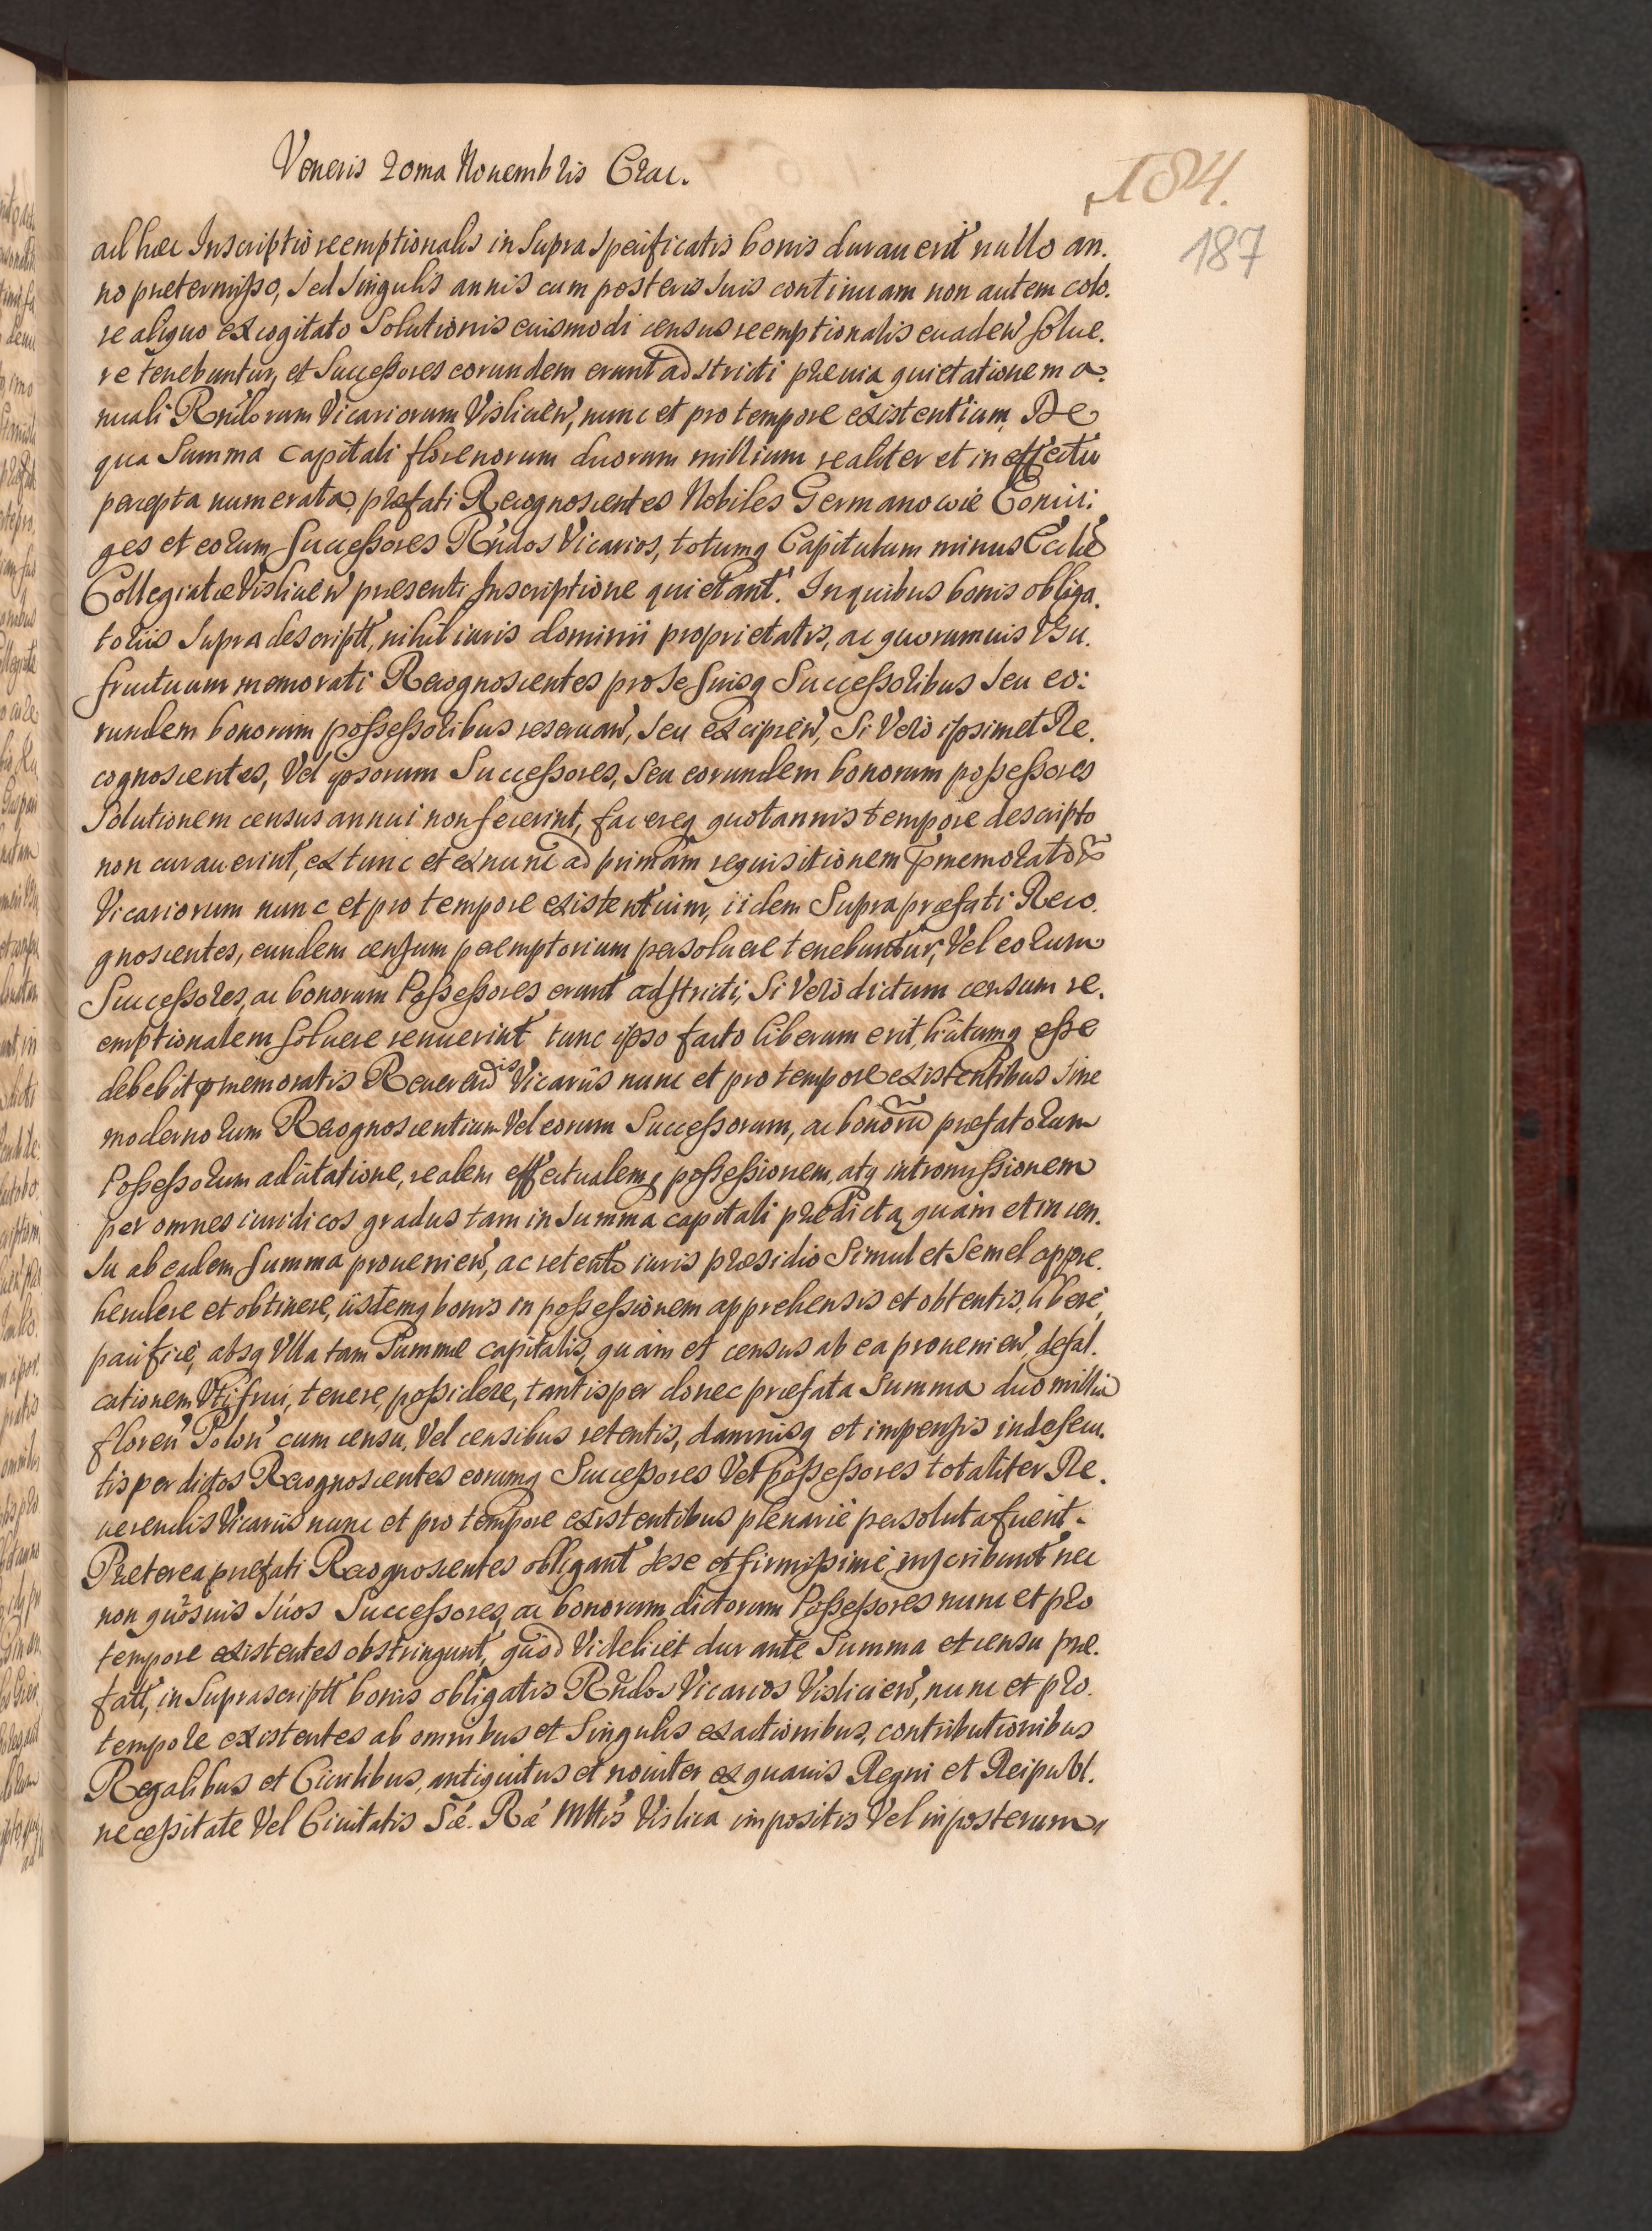 Veneris 20ma Nouembris Crac.
184.
187
ad hæc Inscriptio reemptionalis in supra specificatis bonis durauerit nullo an.
no prætermisso, sed singulis annis cum posteris suis continuam non autem colo.
re aliquo excogitato solutionis euismodi census reemptionalis euaden solue.
re tenebuntur, et Successores eorundem erunt adstricti præuia quietatione ma.
nuali Rndorum Vicariorum Vislicien, nunc et pro tempore existentium, De
qua Summa capitali florenorum duorum millium realiter et in effectu
percepta numerata, præfati Recognoscentes Nobiles Germanowie Coniu:
ges et eorum Successores Rndos Vicarios, totumq Capitulum minus Ecclie
Collegiatæ Vislicien præsenti Inscriptione quietant. In quibus bonis obliga.
toriis supra descriptt, nihil iuris dominii proprietatis, ac quorumuis Vsu.
fructuum memorati Recognoscentes pro se suisq Successoribus seu eo:
rundem bonorum possessoribus reseruan, seu excipien, Si Vero ipsimet Re.
cognoscentes, Vel ipsorum Successores, seu eorundem bonorum possessores
Solutionem census annui non fecerint, facereq quotannis tempore descripto
non curauerint, ex tunc et ex nunc ad primam requisitionem præmemorator
Vicariorum nunc et pro tempore existentium, iidem Supra præfati Reco.
gnoscentes, eundem censum peremptorium persoluere tenebuntur, Vel eorum
Successores, ac bonorum Possessores erunt adstricti, Si Vero dictum censum re.
emptionalem soluere renuerint tunc ipso facto liberum erit, licitumq esse
debebit præmemoratis Reuerendis Vicariis nunc et pro tempore existentibus sine
modernorum Recognoscentium Vel eorum Successorum, ac bonoru præfatorum
Possessorum ad citatione, realem effectualemq possessionem, atq intromissionem
per omnes iuridicos gradus tam in summa capitali prædicta, quam et in cen.
su ab eadem summa prouenien, ac retento iuris præsidio simul et semel appre.
hendere et obtinere, iisdemq bonis in possessionem apprehensis et obtentis, libere,
pacifice, absq Vlla tam Summæ capitalis, quam et census ab ea prouenien defal.
cationem Vti frui, tenere, possidere, tantisper donec præfata summa duo millia
floren Polon cum censu, Vel censibus retentis, damnisq et impensis inde secu.
tis per dictos Recognoscentes eorumq Successores Vel possessores totaliter Re.
uerendis Vicariis nunc et pro tempore existentibus plenarie persoluta fuerit.
Præterea præfati Recognoscentes obligant sese et firmissime inscribunt nec
non quosuis suos Successores, ac bonorum dictorum Possessores nunc et pro
tempore existentes obstringunt, quod Videlicet durante summa et censu præ.
fatt, in suprascriptt bonis obligatis Rndos Vicarios Vislicien, nunc et pro.
tempore existentes ab omnibus et singulis exactionibus, contributionibus
Regalibus et Ciuilibus, antiquitus et nouiter ex quauis Regni et Reipubl.
necessitate Vel Ciuitatis Sæ. Ræ Mttis Vislica impositis Vel inposterum